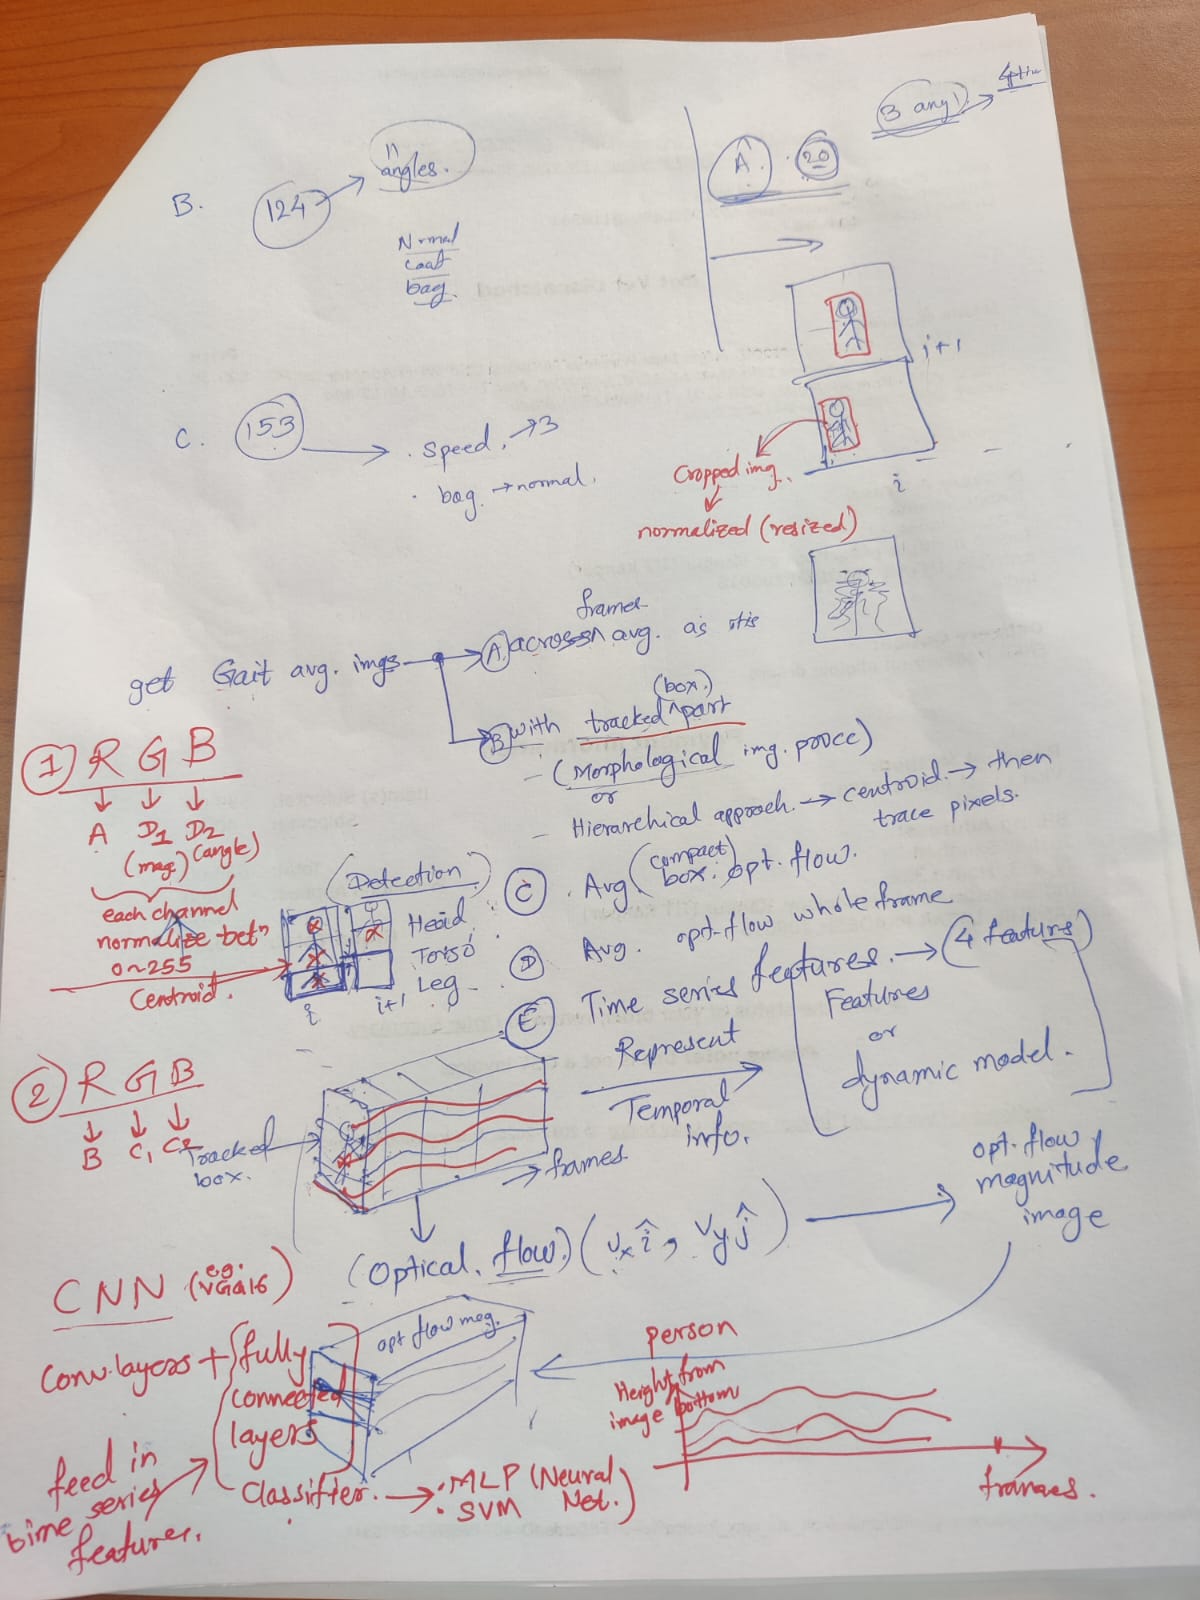 B. 124 → 11 angles.
Normal
coat
bag.
A. 20
3 angl.
C. 153 → . speed. → 3
. bag. → normal.
i+1
i
Cropped img.
normalized (resized)
get Gait avg. imgs
A across frames avg. as this
B with tracked (box.) part
- (Morphological img. procc)
or
- Hierarchical approach. → centroid. → then
trace pixels.
C . Avg. (compact) box. opt. flow.
D Avg. opt-flow whole frame
E Time series features. → (4 features)
Features
or
dynamic model.
1 R G B
A D1 D2
(mag) (angle)
each channel
normalize betn
0~255
Centroid.
(Detection)
Head
Torso
Leg
i
i+1
Represent
Temporal
info.
2 R G B
B C1 C2
Tracked
box.
→ frames
(Optical flow) (vx î, vy ĵ)
opt. flow
magnitude
image
CNN (e.g. VGG16)
Conv. layers + fully
connected
layers
opt flow mag.
Classifier. → . MLP (Neural
. SVM Net.)
feed in
time series
features.
person
Height from
image bottom
frames.